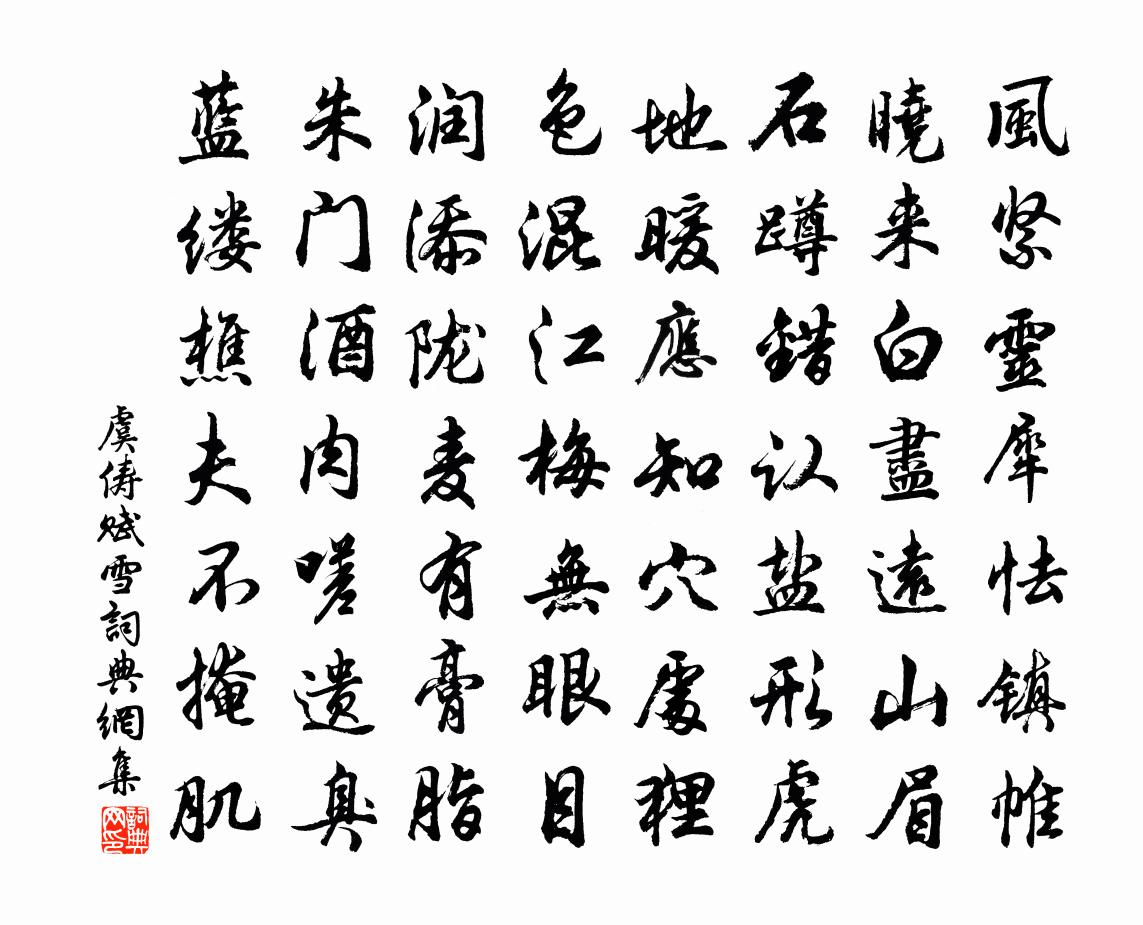 風緊靈犀怯镇帷
曉来白盡遠山眉
石蹲錯认盐形虎
地暖應知穴處狸
色混江梅無眼目
润添陇麦有膏脂
朱门酒肉嗟遗臭
蓝缕樵夫不掩肌
虞俦赋雪詞典網集
詞典网印